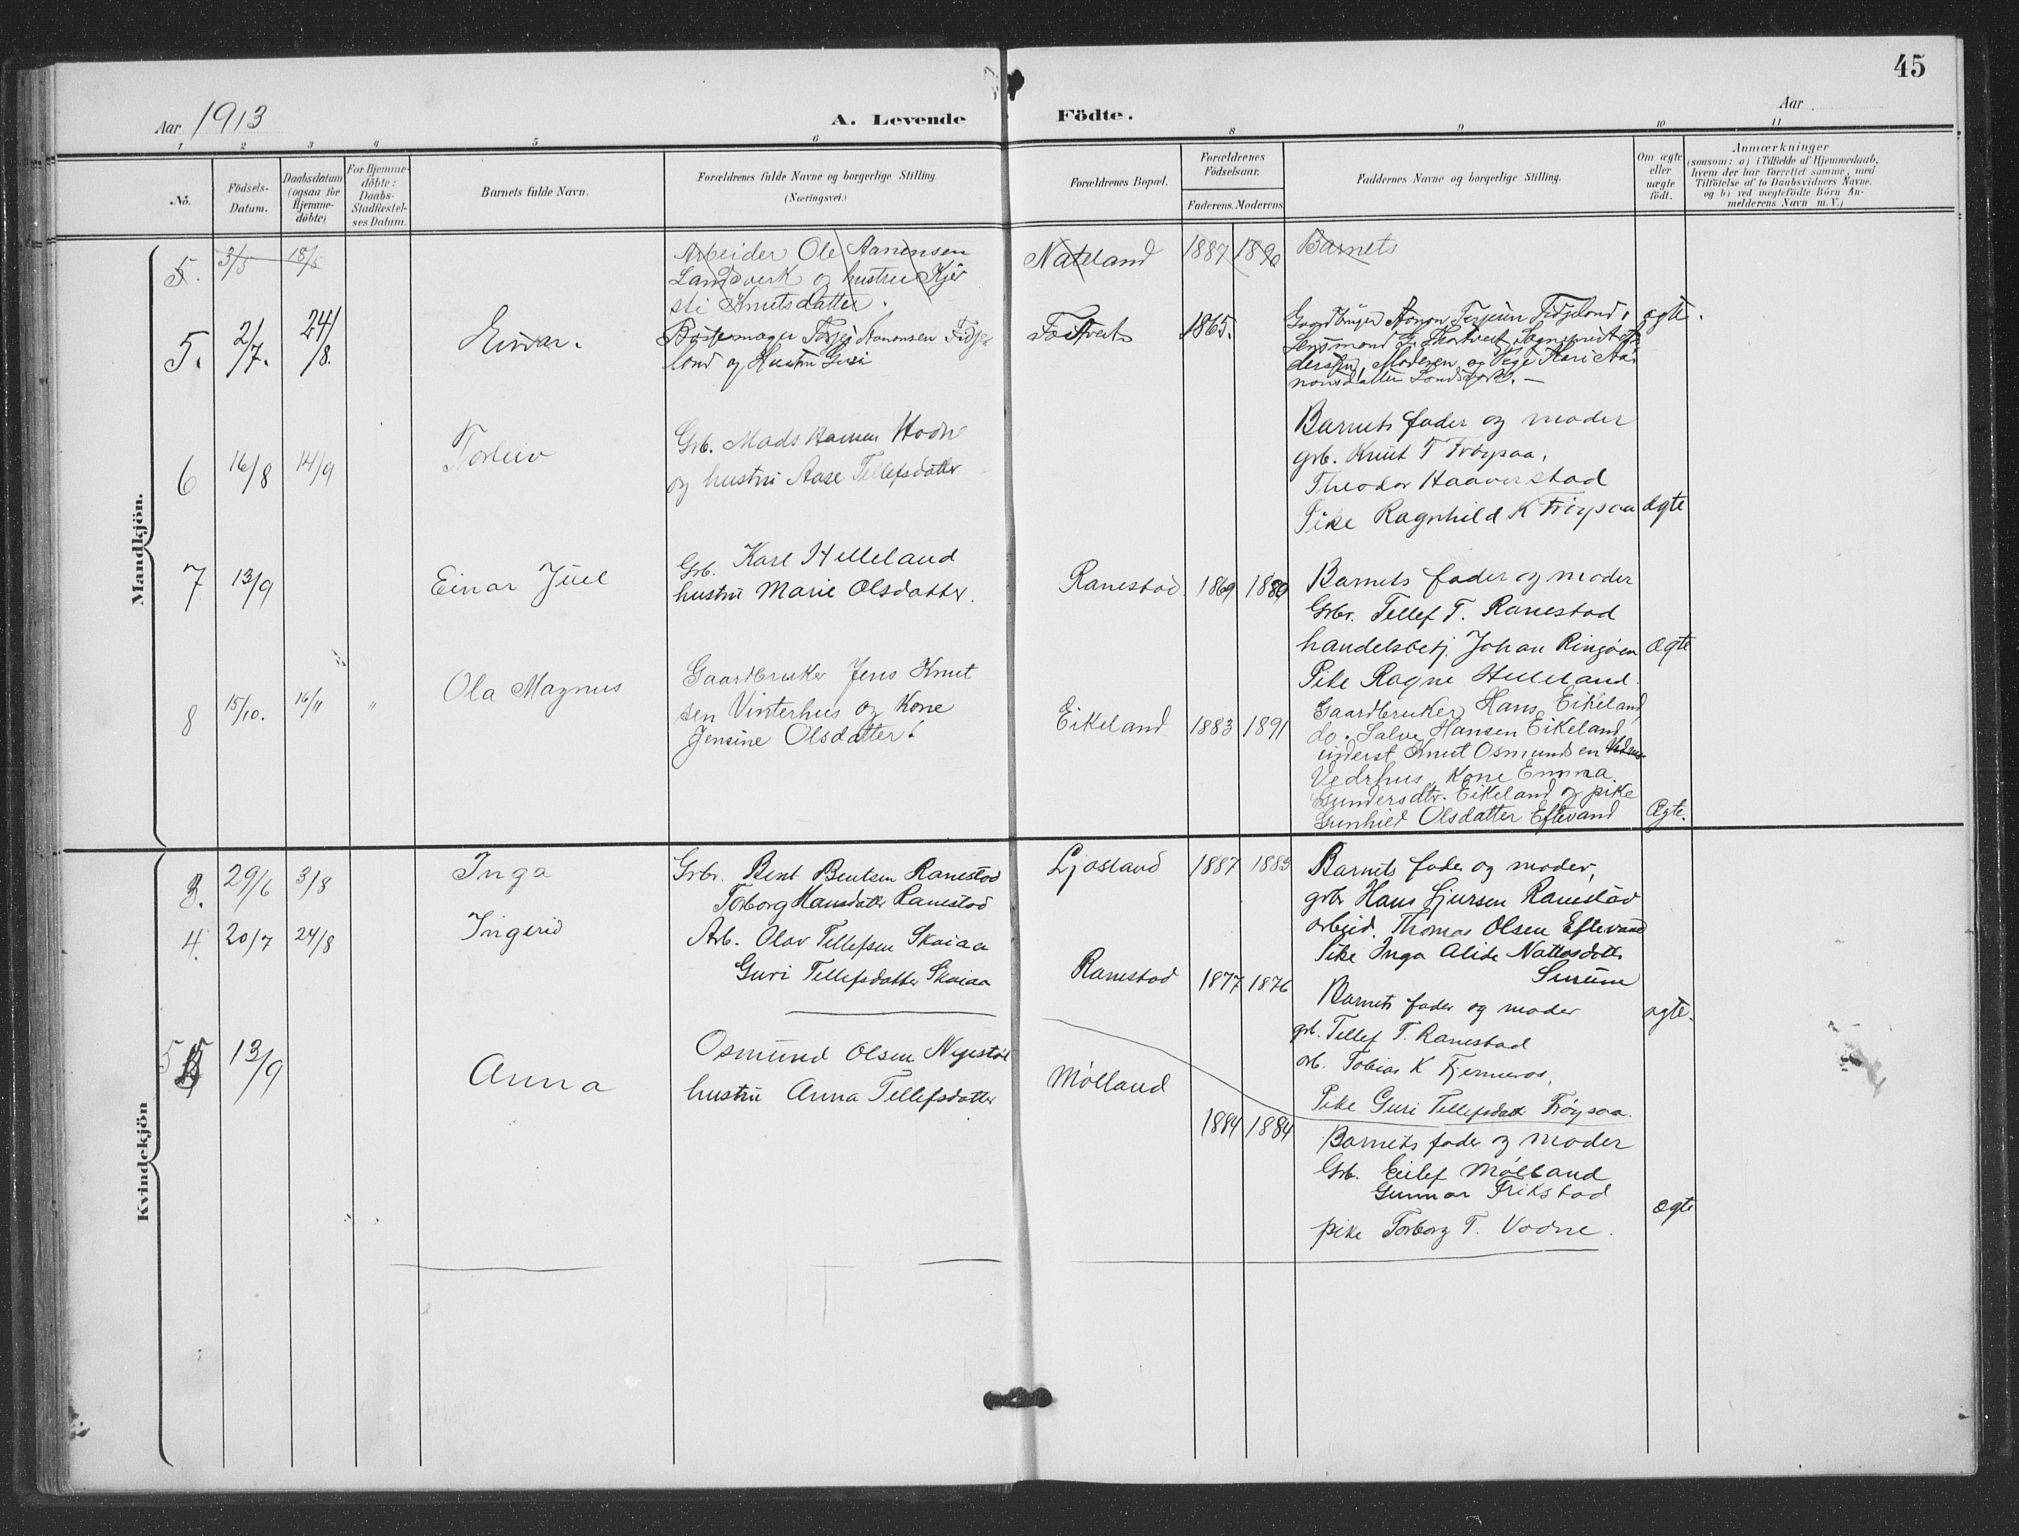 45
Aar 1913
A. Levende Födte.
Aar
1 2 3 4 5 6 8 9 10 11
No.
Födsels-Datum.
Daabsdatum (ogsaa for Hjemmedöbte)
For Hjemmedöbte: Daabs-Stadfestelses Datum.
Barnets fulde Navn.
Forældrenes fulde Navne og borgerlige Stilling
(Næringsvei.)
Forældrenes Bopæl.
Forældrenes Födselsaar.
Faderens. Moderens
Faddernes Navne og borgerlige Stilling.
Om ægte eller uægte födt.
Anmærkninger
(saasom: a) i Tilfælde af Hjemmedaab,
hvem der har forrettet samme, med
Tilföielse af to Daabsvidners Navne.
og b) ved uægtefödte Börn Anmelderens Navn m. V.)
Mandkjön.
5. 3/5 18/5
Arbeider Ole Aanensen
Landsverk og hustru Kjer
sti Knutsdatter.
Nateland 1887 1890 Barnets
5. 2/7. 24/8. Einar.
Torjei Aanonsen Fidje
land og Hustru Guri
1865.
Gaardbruger Aanon Fidjeland,
Moderen og Pige Kari Aa
nonsdatter
ægte.
6 16/8 14/9 Torleiv
Grb. Mads Hansen
og hustru Aase Tellefsdatter
Barnets fader og moder
grb. Knut T Frøysaa,
Theodor Haaverstad
Pike Ragnhild K Frøysaa ægte
7 13/9 Einar Juel
Grb. Karl Helleland
hustru Marie Olsdatter.
Ranestad 1869 1889
Barnets fader og moder
Grbr. Tellef T. Ranestad
handelsbetj. Johan Ringøen ægte
Pike Ragne Helleland.
8 15/10. 16/11 " Ola Magnus
Gaardbruker Jens Knut
sen Vinterhus og Kone
Jensine Olsdatter.
Eikeland 1883 1891
Gaardbruker Hans Eikeland
do. Salve Hansen Eikeland
underst Knut Osmundsen
Vedrhus, Kone Emma
Gundersdtr. Eikeland og pike
Gunhild Olsdatter Eftevand Ægte.
Kvindekjön
3. 29/6 3/8 Inga
Grbr. Bent Bentsen Ranestad
Torborg Hansdatter Ranestad
Ljosland 1887 1883
Barnets fader og moder,
grbr Hans Sjursen Ranestad
arbeid. Thomas Olsen Eftevand
Pike Inga Alide
4. 20/7 24/8 Ingerid
Arb. Olav Tellefsen Skaiaa
Guri Tellefsdatter Skaiaa
Ranestad 1877 1876
Barnets fader og moder ægte.
grb. Tellef T. Ranestad
arb. Tobias K
Pike Guri Tellefsdatt Frøysaa.
5 13/9 Anna
Osmund Olsen
hustru Anna Tellefsdatter
Mølland
1884 1884
Barnets fader og moder
Grb. Eilef Mølland
Gunnar Frikstad
ægte
pike Torborg T. Vodne.